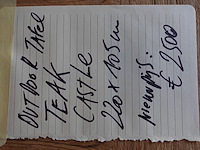 OUTDOOR TAFEL
TEAK
CASTLE
220 x 105 cm
nieuwprijs:
€ 2500